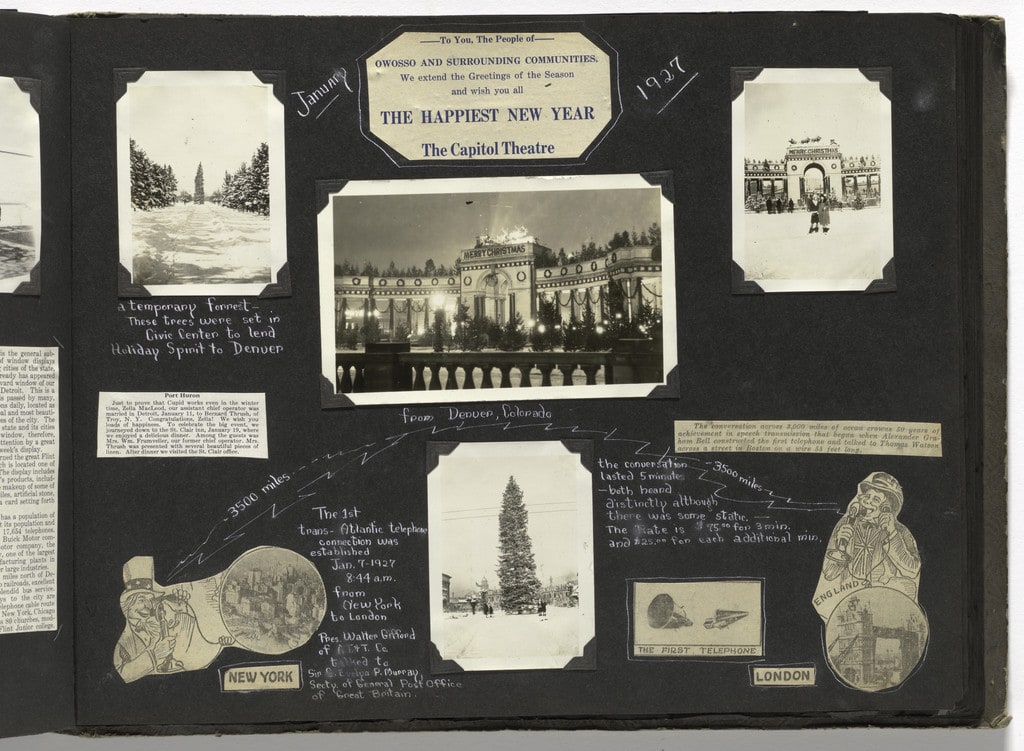 January
1927
—To You, The People of—
OWOSSO AND SURROUNDING COMMUNITIES.
We extend the Greetings of the Season
and wish you all
THE HAPPIEST NEW YEAR
The Capitol Theatre
MERRY CHRISTMAS
MERRY CHRISTMAS
a temporary forrest—
These trees were set in
Civic Center to lend
Holiday Spirit to Denver
from Denver, Colorado
is the general
of window displays
cities of the state,
ready has appeared
ward window of our
Detroit. This is a
is passed by many,
ons daily, located as
al and most beauti-
s of the city. The
state and its cities
window, therefore,
ttention by a great
week's display.
rned the great Flint
ch is located one of
The display includes
's products, includ-
makeup of some of
iles, artificial stone,
a card setting forth
has a population of
t its population and
17,634 telephones.
Buick Motor com-
otor company, the
y, one of the largest
facturing plants in
r large industries.
miles north of De-
railroads, excellent
lendid bus service;
ys to the city are
elephone cable route
New York, Chicago
s 80 churches, mod-
Flint Junior college.
Port Huron
Just to prove that Cupid works even in the winter
time, Zella MacLeod, our assistant chief operator was
married in Detroit, January 11, to Bernard Thrush, of
Troy, N. Y. Congratulations, Zella! We wish you
loads of happiness. To celebrate the big event, we
journeyed down to the St. Clair Inn, January 19, where
we enjoyed a delicious dinner. Among the guests was
Mrs. Wm. Framveller, our former chief operator. Mrs.
Thrush was presented with several beautiful pieces of
linen. After dinner we visited the St. Clair office.
The conversation across 3,500 miles of ocean crowns 50 years of
achievement in speech transmission that began when Alexander Gra-
ham Bell constructed the first telephone and talked to Thomas Watson
across a street in Boston on a wire 53 feet long.
-3500 miles-
-3500 miles-
The 1st
trans-Atlantic telephone
connection was
established
Jan. 7-1927
8:44 a.m.
from
New York
to London
Pres. Walter Gifford
of A.T&T. Co
talked to
Sir P. Murray,
Secty. of General Post Office
of Great Britain.
the conversation
lasted 5 minutes
—both heard
distinctly although
there was some static.—
The Rate is $75.00 for 3 min.
and $25.00 for each additional min.
NEW YORK
THE FIRST TELEPHONE
ENGLAND
LONDON